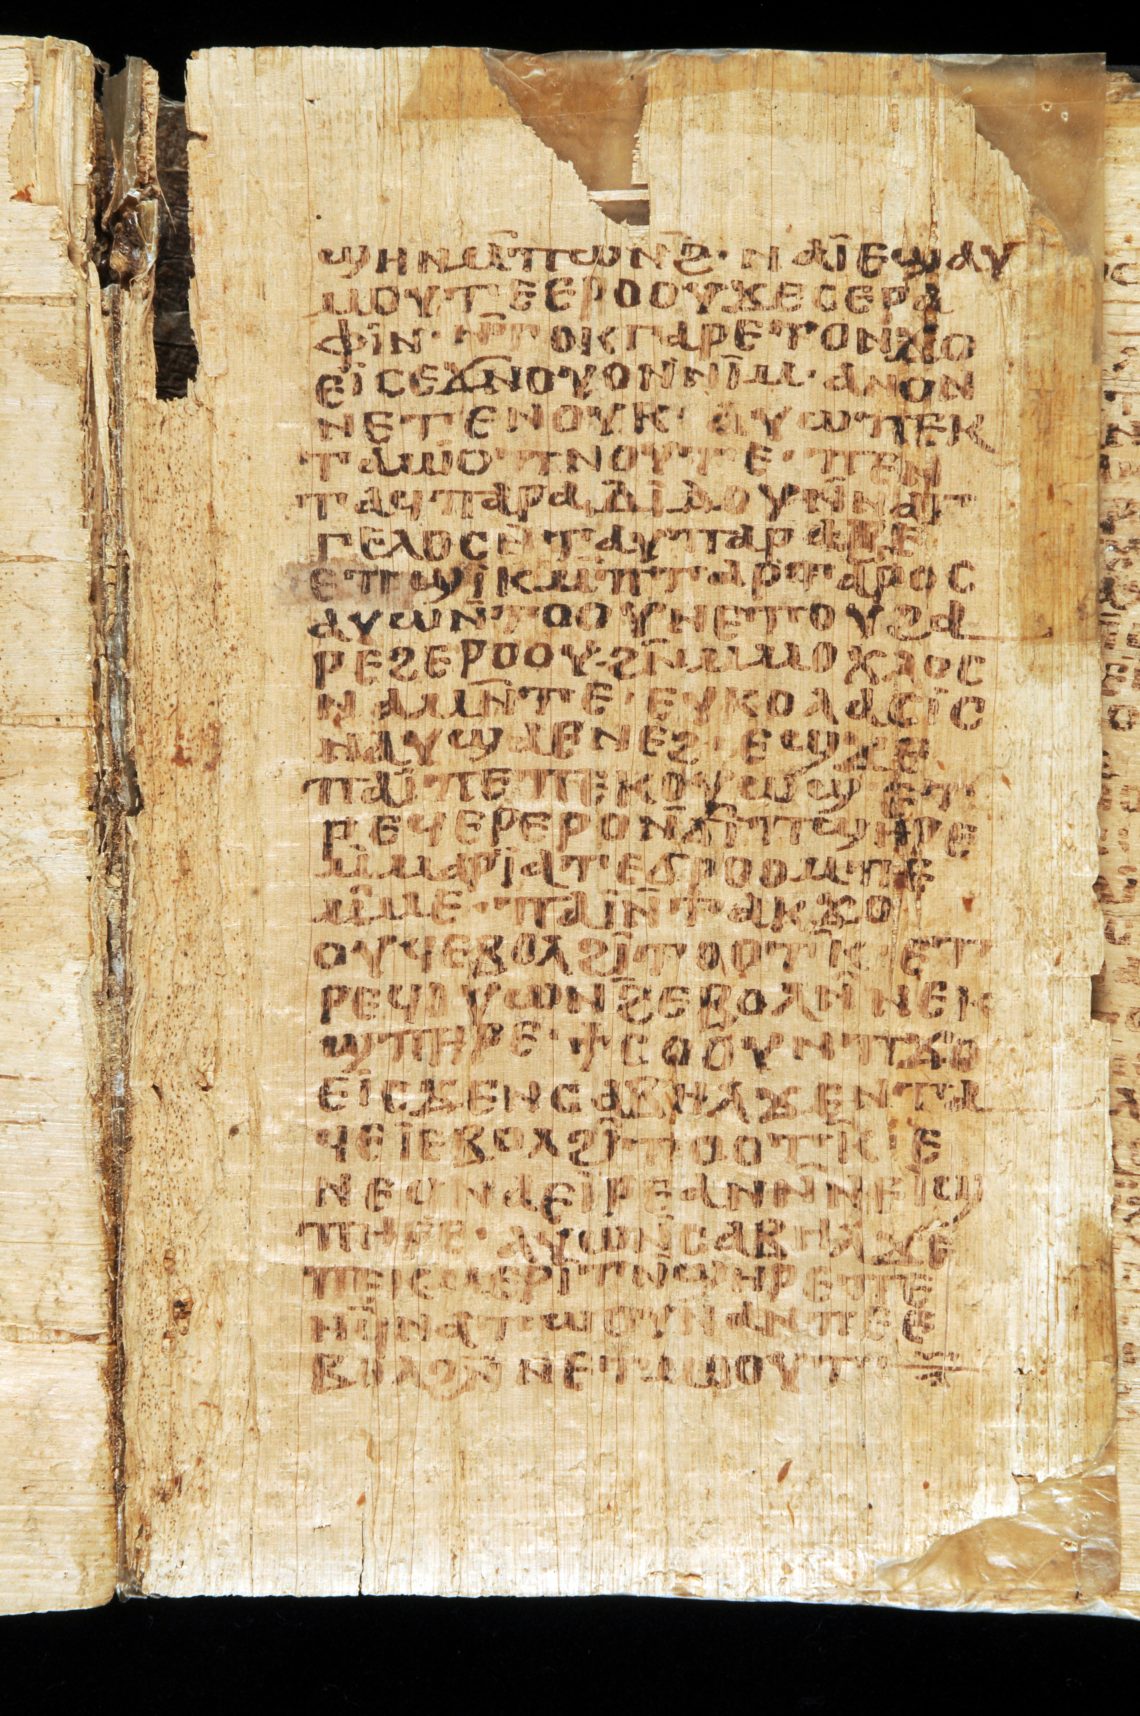 ϣⲏⲛⲙ̄ⲡⲱⲛϩ̄· ⲛⲁⲓ̈ⲉϣⲁⲩ
ⲙⲟⲩⲧⲉⲉⲣⲟⲟⲩϫⲉⲥⲉⲣⲁ
ⲫⲓⲛ· ⲛ̄ⲧⲟⲕⲅⲁⲣⲉⲧⲟⲛϫⲟ
ⲉⲓ̈ⲥⲉϫⲛⲟⲩⲟⲛⲛⲓⲙ· ⲁⲛⲟⲛ
ⲛⲉⲧⲉⲛⲟⲩⲕ· ⲁⲩⲱⲡⲉⲕ
ⲧⲁⲓ̈ⲟⲡⲛⲟⲩⲧⲉ· ⲡⲉⲛ
ⲧⲁϥⲡⲁⲣⲁⲇⲓⲇⲟⲩⲛ̄ⲛⲁⲅ
ⲅⲉⲗⲟⲥⲉⲛⲧⲁⲩⲡⲁⲣⲁⲃⲁ
ⲉⲡϣⲓⲕⲙ̄ⲡⲧⲁⲣⲧⲁⲣⲟⲥ
ⲁⲩⲱⲛ̄ⲧⲟⲟⲩⲛⲉⲧⲟⲩϩⲁ
ⲣⲉϩⲉⲣⲟⲟⲩ· ϩⲛ̄ⲙⲙⲟⲭⲗⲟⲥ
ⲛⲁⲙⲛ̄ⲧⲉ· ⲉⲩⲕⲟⲗⲁⲥⲓⲥ
ⲛⲁⲩϣⲁⲉⲛⲉϩ· ⲉϣϫⲉ
ⲡⲁⲓ̈ⲡⲉⲡⲉⲕⲟⲩⲱϣ ⲉⲧ
ⲣⲉϥⲉⲣⲉⲣⲟⲛ̄ϭⲓⲡϣⲏⲣⲉ
ⲙ̄ⲙⲁⲣⲓⲁⲧⲉϭⲣⲟⲟⲙⲡⲉ
ⲙ̄ⲙⲉ· ⲡⲁⲓ̈ⲛ̄ⲧⲁⲕϫⲟ
ⲟⲩϥⲉⲃⲟⲗϩⲓ̈ⲧⲟⲟⲧⲕ̄· ⲉⲧ
ⲣⲉϥⲟⲩⲱⲛϩ̄ⲉⲃⲟⲗⲛ̄ⲛⲉⲕ
ϣⲡⲏⲣⲉ· ϯⲥⲟⲟⲩⲛⲡϫⲟ
ⲉⲓ̈ⲥϫⲉⲛⲥⲁⲃⲏⲗϫⲉⲛⲧⲁ
ϥⲉⲓ̈ⲉⲃⲟⲗϩⲓ̈ⲧⲟⲟⲧⲕ̄· ⲉ
ⲛⲉϥⲛⲁⲉⲓ̈ⲣⲉⲁⲛⲛ̄ⲛⲉⲓ̈ϣ
ⲡⲏⲣⲉ· ⲁⲩⲱⲛ̄ⲥⲁⲃⲏⲗϫⲉ
ⲡⲉⲕⲙⲉⲣⲓⲧⲛ̄ϣⲏⲣⲉⲡⲉ
ⲛⲉϥⲛⲁⲧⲱⲟⲩⲛⲁⲛⲡⲉⲉ
ⲃⲟⲗϩⲛ̄ⲛⲉⲧⲙⲟⲟⲩⲧ·